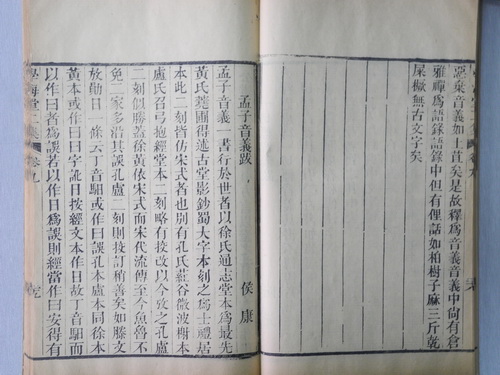 惡棄音義如土苴矣是故釋爲音義音義中尙有倉
雅禪爲語錄語錄中但有俚話如柏樹子麻三斤乾
屎橛無古文字矣
孟子音義跋
侯康
孟子音義一書行於世者以徐氏通志堂本爲最先
黃氏蕘圃得述古堂影鈔蜀大字本刻之爲士禮居
本此二刻皆仿宋式者也別有孔氏葒谷微波榭本
盧氏召弓抱經堂本二刻略有挍改以今攷之孔盧
二刻似勝蓋徐黃依宋式而宋代流傳至今魚魯不
免二家多沿其誤孔盧二刻則挍訂稍善矣如滕文
放勳日一條云丁音馹或作曰誤孔本盧本同徐本
黃本或作曰曰字訛日按經文本作日故丁音馹而
以作曰者爲誤若以作日爲誤則經當作曰安得有
學海堂二集
卷九